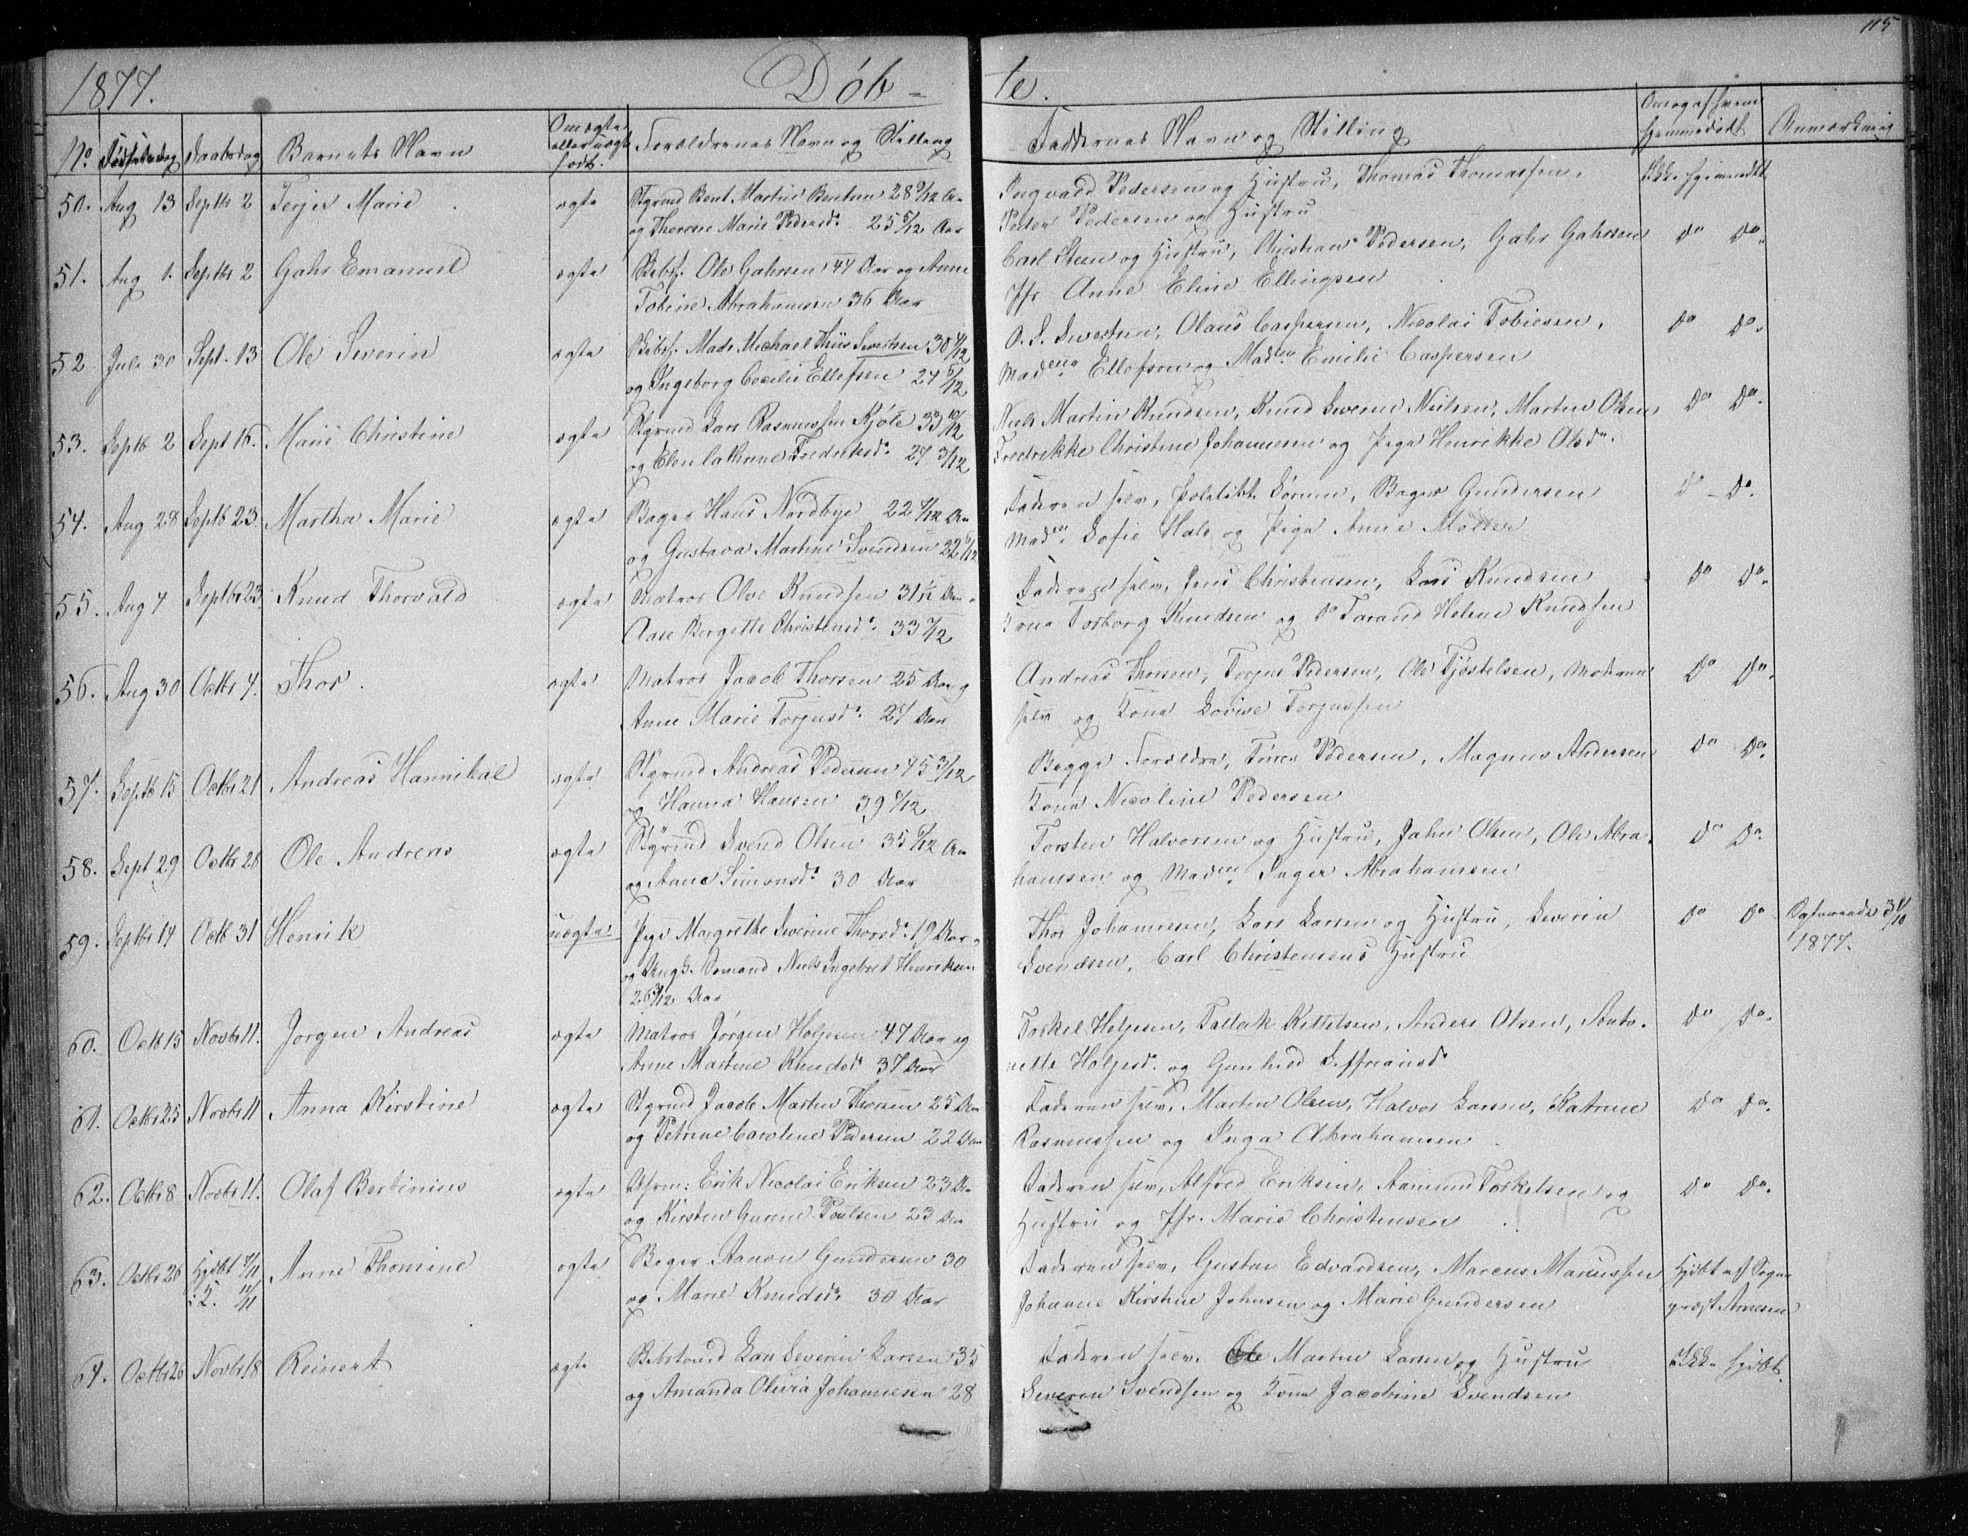 115
1877.
Döb-
te.
No
Fødselsdag
Daabsdag
Barnets Navn
Om ægte
eller uægte
født.
Forældrenes Navn og Stilling
Faddernes Navn og Stilling
Om og af hvem
hjemmedøbt
Anmærkning
50. Aug 13 Septbr 2 Terjer Marie ægte Styrmd Bent Martin Bentsen 28 9/12 Aar
og Therese Marie Pedersdr 25 5/12 Aar
Ingvald Pedersen og Hustru, Thomas Thomassen,
Peder Pedersen og Hustru
Ikke hjemmedøbt
51. Aug 1. Septbr 2 Gahr Emanuel ægte Skibsf. Ole Gahrsen 44 Aar og Anne
Tobine Abrahamsen 36 Aar
Carl Steen og Hustru, Christian Pedersen, Gahr Gahrsen
Jfr Anne Eline Ellingsen
Do Do.
52 Juli 30 Sept. 13 Ole Severin ægte Skibsf. Mads Michael Thiis Sivertsen 30 4/12
og Ingeborg Cecilie Ellefsen 27 5/12
O. S. Sivertsen, Olaus Caspersen, Nicolai Tobiesen,
Maden Ellefsen og Maden Emilie Caspersen
Do Do.
53. Septb 2 Sept 16. Marie Christine ægte Styrmd Lars Rasmussen Kjøle 33 10/12
og Elen Cathrine Frederiksdr 27 3/12
Niels Martin Knudsen, Knud Severin Nielsen, Martin Olsen
Fredrikke Christine Johannesen og Pige Henrikke Olsdr.
Do Do.
54. Aug 28 Septb 23 Martha Marie ægte Bager Hans Nordbye 22 4/12 Aar
og Gustava Martine Svendsen 22 6/12
Faderen selv, Sørine, Bager Gundersen
Maden Sofie Hals og Pige Anne Møller
Do - Do.
55. Aug 4 Septbr 23 Knud Thorvald ægte Matros Olve Knudsen 31 1/12 Aar
Aase Bergette Christensdr. 33 7/12
Faderen selv, Jens Christensen, Lars Knudsen
Kona Torborg Knudsen og Do Tarand Helene Knudsen
Do Do.
56. Aug 30 Octbr 4. Thor. ægte Matros Jacob Thorsen 25 Aar og
Anne Marie Torjusdr. 27 Aar
Andreas Thorsen, Torjus Pedersen, Ole Tjøstelsen, Moderen
selv og Kona Lovise Torjussen
Do Do.
57. Septb 15 Octbr 21 Andreas Hannikal ægte Styrmd Andreas Pedersen 45 3/12
og Hanna Hansen 39 9/12
Begge Forældre, Tønes Pedersen, Magnus Andersen
Kona Nicoline Pedersen
Do Do.
58. Sept 29 Octbr 28 Ole Andreas ægte Styrmd Svend Olsen 35 9/12 Aar
og Anne Simonsdr 30 Aar
Torsten Halvorsen og Hustru, Jahn Olsen, Ole Abra-
hamsen og Maden Inger Abrahamsen
Do Do.
59. Septbr 14 Octb 31 Henrik uægte Pige Margrethe Severine Thorsdr. 19 Aar
og Ungk. Sømand Niels Ingebret Henriksen
26 3/12 Aar
Thor Johannesen, Lars Larsen og Hustru, Severin
Svendsen, Carl Christensens Hustru
Do Do Ægteviede 31/10
1877.
60. Octb 15 Novbr 11. Jørgen Andreas ægte Matros Jørgen Holjesen 47 Aar og
Anne Martine Knudsdr 37 Aar
Torkel Holjesen, Tallak Kittelsen, Anders Olsen, Anto-
nette Holjesdr. og Gunhild Seffriansdr
Do Do.
61. Octbr 25 Novbr 11 Anna Kirstine ægte Styrmd Jacob Martin Thorsen 25 Aar
og Petrine Caroline Pedersen 22 Aar
Faderen selv, Martin Olsen, Halvor Larsen, Katrine
Rasmussen og Inga Abrahamsen.
Do Do.
62. Octbr 8 Novbr 11. Olaf Bertinius ægte Erik Nicolai Eriksen 23 Aar
og Kirsten Gurine Poulsen 23 Aar
Faderen selv, Alfred Eriksen, Aamund Torkelsen og
Hustru og Jfr. Marie Christensen
Do Do.
63. Octbr 20 Hjdbt 7/11
i 11/11 Anne Thomine ægte Bager Aanon Gundersen 30
og Marie Knudsdr 30 Aar
Faderen selv, Gustav Edvardsen, Marcus Mariussen
Johanne Kirstine Johnsen og Marie Gundersen
Hjdbt af Sogne
præst Arnesen
64. Octbr 26 Novbr 18 Reinert ægte Lars Severin Larsen 35
og Amanda Olivia Johannesen 28
Faderen selv. Ole Martin Larsen og Hustru
Severin Svendsen og Kona Jacobine Svendsen
Ikke hjdbt.